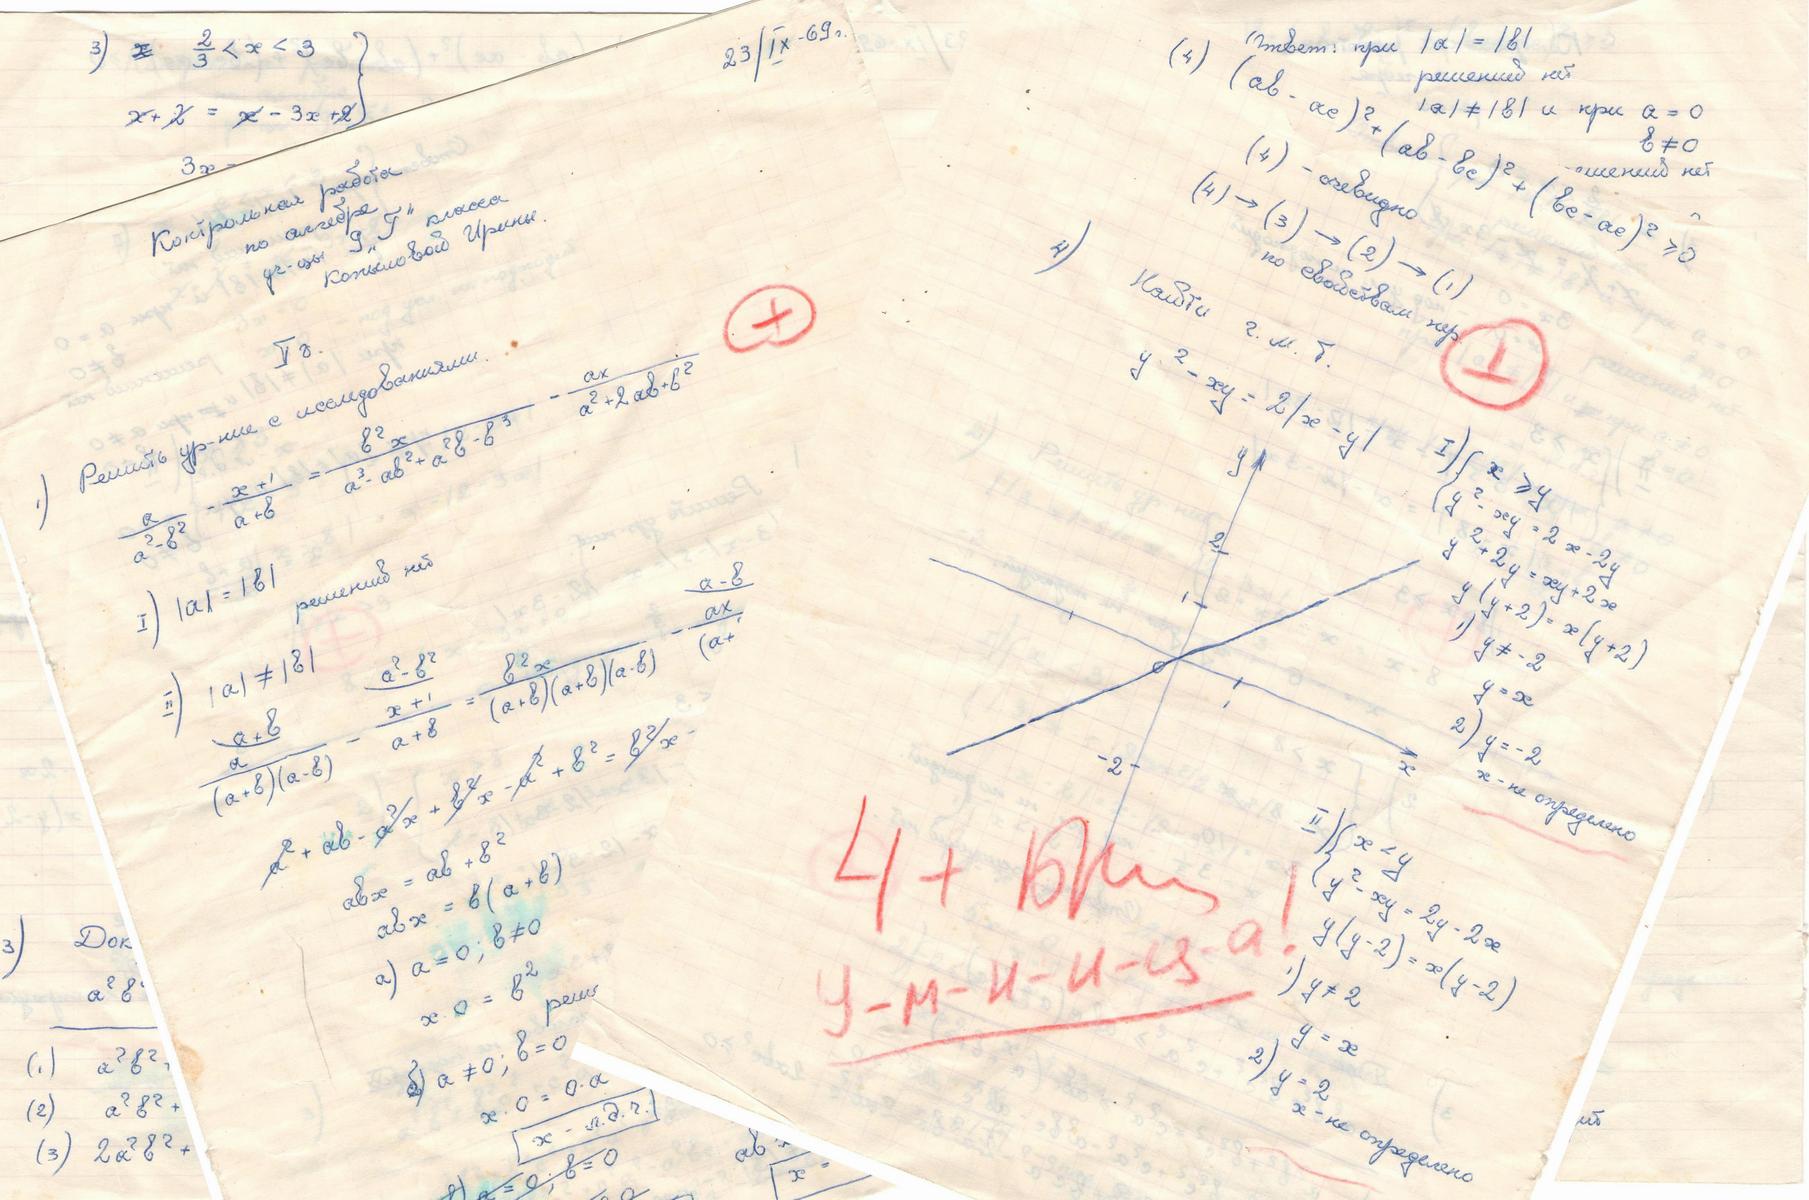 3) 2/3 < x < 3
x + 2 = x - 3x + 2
3x -
23/IX-69г.
Контрольная работа
по алгебре
уч-цы 9 „Г" класса
Копыловой Ирины.
II в.
1) Решить ур-ние с исследованиями.
a/(a²-b²) - (x+1)/(a+b) = b²x/(a³-ab²+a²b-b³) - ax/(a²+2ab+b²)
I) |a| = |b|
решений нет
II) |a| ≠ |b|
a+b a²-b² a-b
a/((a+b)(a-b)) - (x+1)/(a+b) = b²x/((a+b)(a+b)(a-b)) - ax/(a+
a² + ab - a²x + b²x - a² + b² = b²x -
abx = ab + b²
abx = b(a+b)
а) a = 0; b ≠ 0
x·0 = b² реш
б) a ≠ 0; b = 0
x·0 = 0·a
x - л.д.ч.
в) a = 0; b = 0
ab
x =
3) Док
a²b²
(1) a²b² +
(2) a²b² +
(3) 2a²b² +
Ответ: при |a| = |b|
решений нет
|a| ≠ |b| и при a = 0
b ≠ 0
решений нет
(4) (ab - ac)² + (ab - bc)² + (bc - ac)² ≥ 0
(4) - очевидно
(4) → (3) → (2) → (1)
по свойствам нер
4) Найти г.м.т.
y² - xy = 2|x - y|
y
2
1
0
1
x
-2
I) { x ≥ y
{ y² - xy = 2x - 2y
y² + 2y = xy + 2x
y(y+2) = x(y+2)
1) y ≠ -2
y = x
2) y = -2
x - не определено
II) { x < y
{ y² - xy = 2y - 2x
y(y-2) = x(y-2)
1) y ≠ 2
y = x
2) y = 2
x - не определено
4+
У-м-н-и-ц-а!